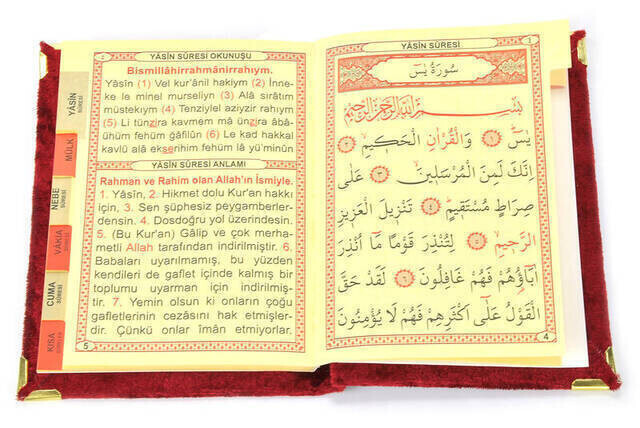 YÂSİN SÛRESİ OKUNUŞU
Bismillâhirrahmânirrahıym.
Yâsîn (1) Vel kur'ânil hakiym (2) İnne-
ke le minel murseliyn (3) Alâ sırâtım
müstekıym (4) Tenziylel aziyzir rahıym
(5) Li tünzira kavmem mâ ünzira âbâ-
ühüm fehüm ğâfilûn (6) Le kad hakkal
kavlü alâ ekserihim fehüm lâ yü'minûn
YÂSİN SÛRESİ ANLAMI
Rahman ve Rahim olan Allah'ın İsmiyle.
1. Yâsîn, 2. Hikmet dolu Kur'an hakkı
için, 3. Sen şüphesiz peygamberler-
densin. 4. Dosdoğru yol üzerindesin.
5. (Bu Kur'an) Gâlip ve çok merha-
metli Allah tarafından indirilmiştir. 6.
Babaları uyarılmamış, bu yüzden
kendileri de gaflet içinde kalmış bir
toplumu uyarman için indirilmiş-
tir. 7. Yemin olsun ki onların çoğu
gafletlerinin cezasını hak etmişler-
dir. Çünkü onlar îmân etmiyorlar.
5
YÂSİN
SÛRESİ
MÜLK
NEBE
SÛRESİ
VÂKIA
SÛRESİ
CUMA
SÛRESİ
KISA
YÂSİN SÛRESİ
سُورَةُ يٰسٓ
بِسْمِ اللّٰهِ الرَّحْمٰنِ الرَّحِيمِ
يٰسٓ ﴿١﴾ وَالْقُرْاٰنِ الْحَكِيمِ ﴿٢﴾
اِنَّكَ لَمِنَ الْمُرْسَلِينَ ﴿٣﴾ عَلٰى
صِرَاطٍ مُسْتَقِيمٍ ﴿٤﴾ تَنْزِيلَ الْعَزِيزِ
الرَّحِيمِ ﴿٥﴾ لِتُنْذِرَ قَوْمًا مَٓا اُنْذِرَ
اٰبَٓاؤُ۬هُمْ فَهُمْ غَافِلُونَ ﴿٦﴾ لَقَدْ حَقَّ
الْقَوْلُ عَلٰٓى اَكْثَرِهِمْ فَهُمْ لَا يُؤْمِنُونَ
4